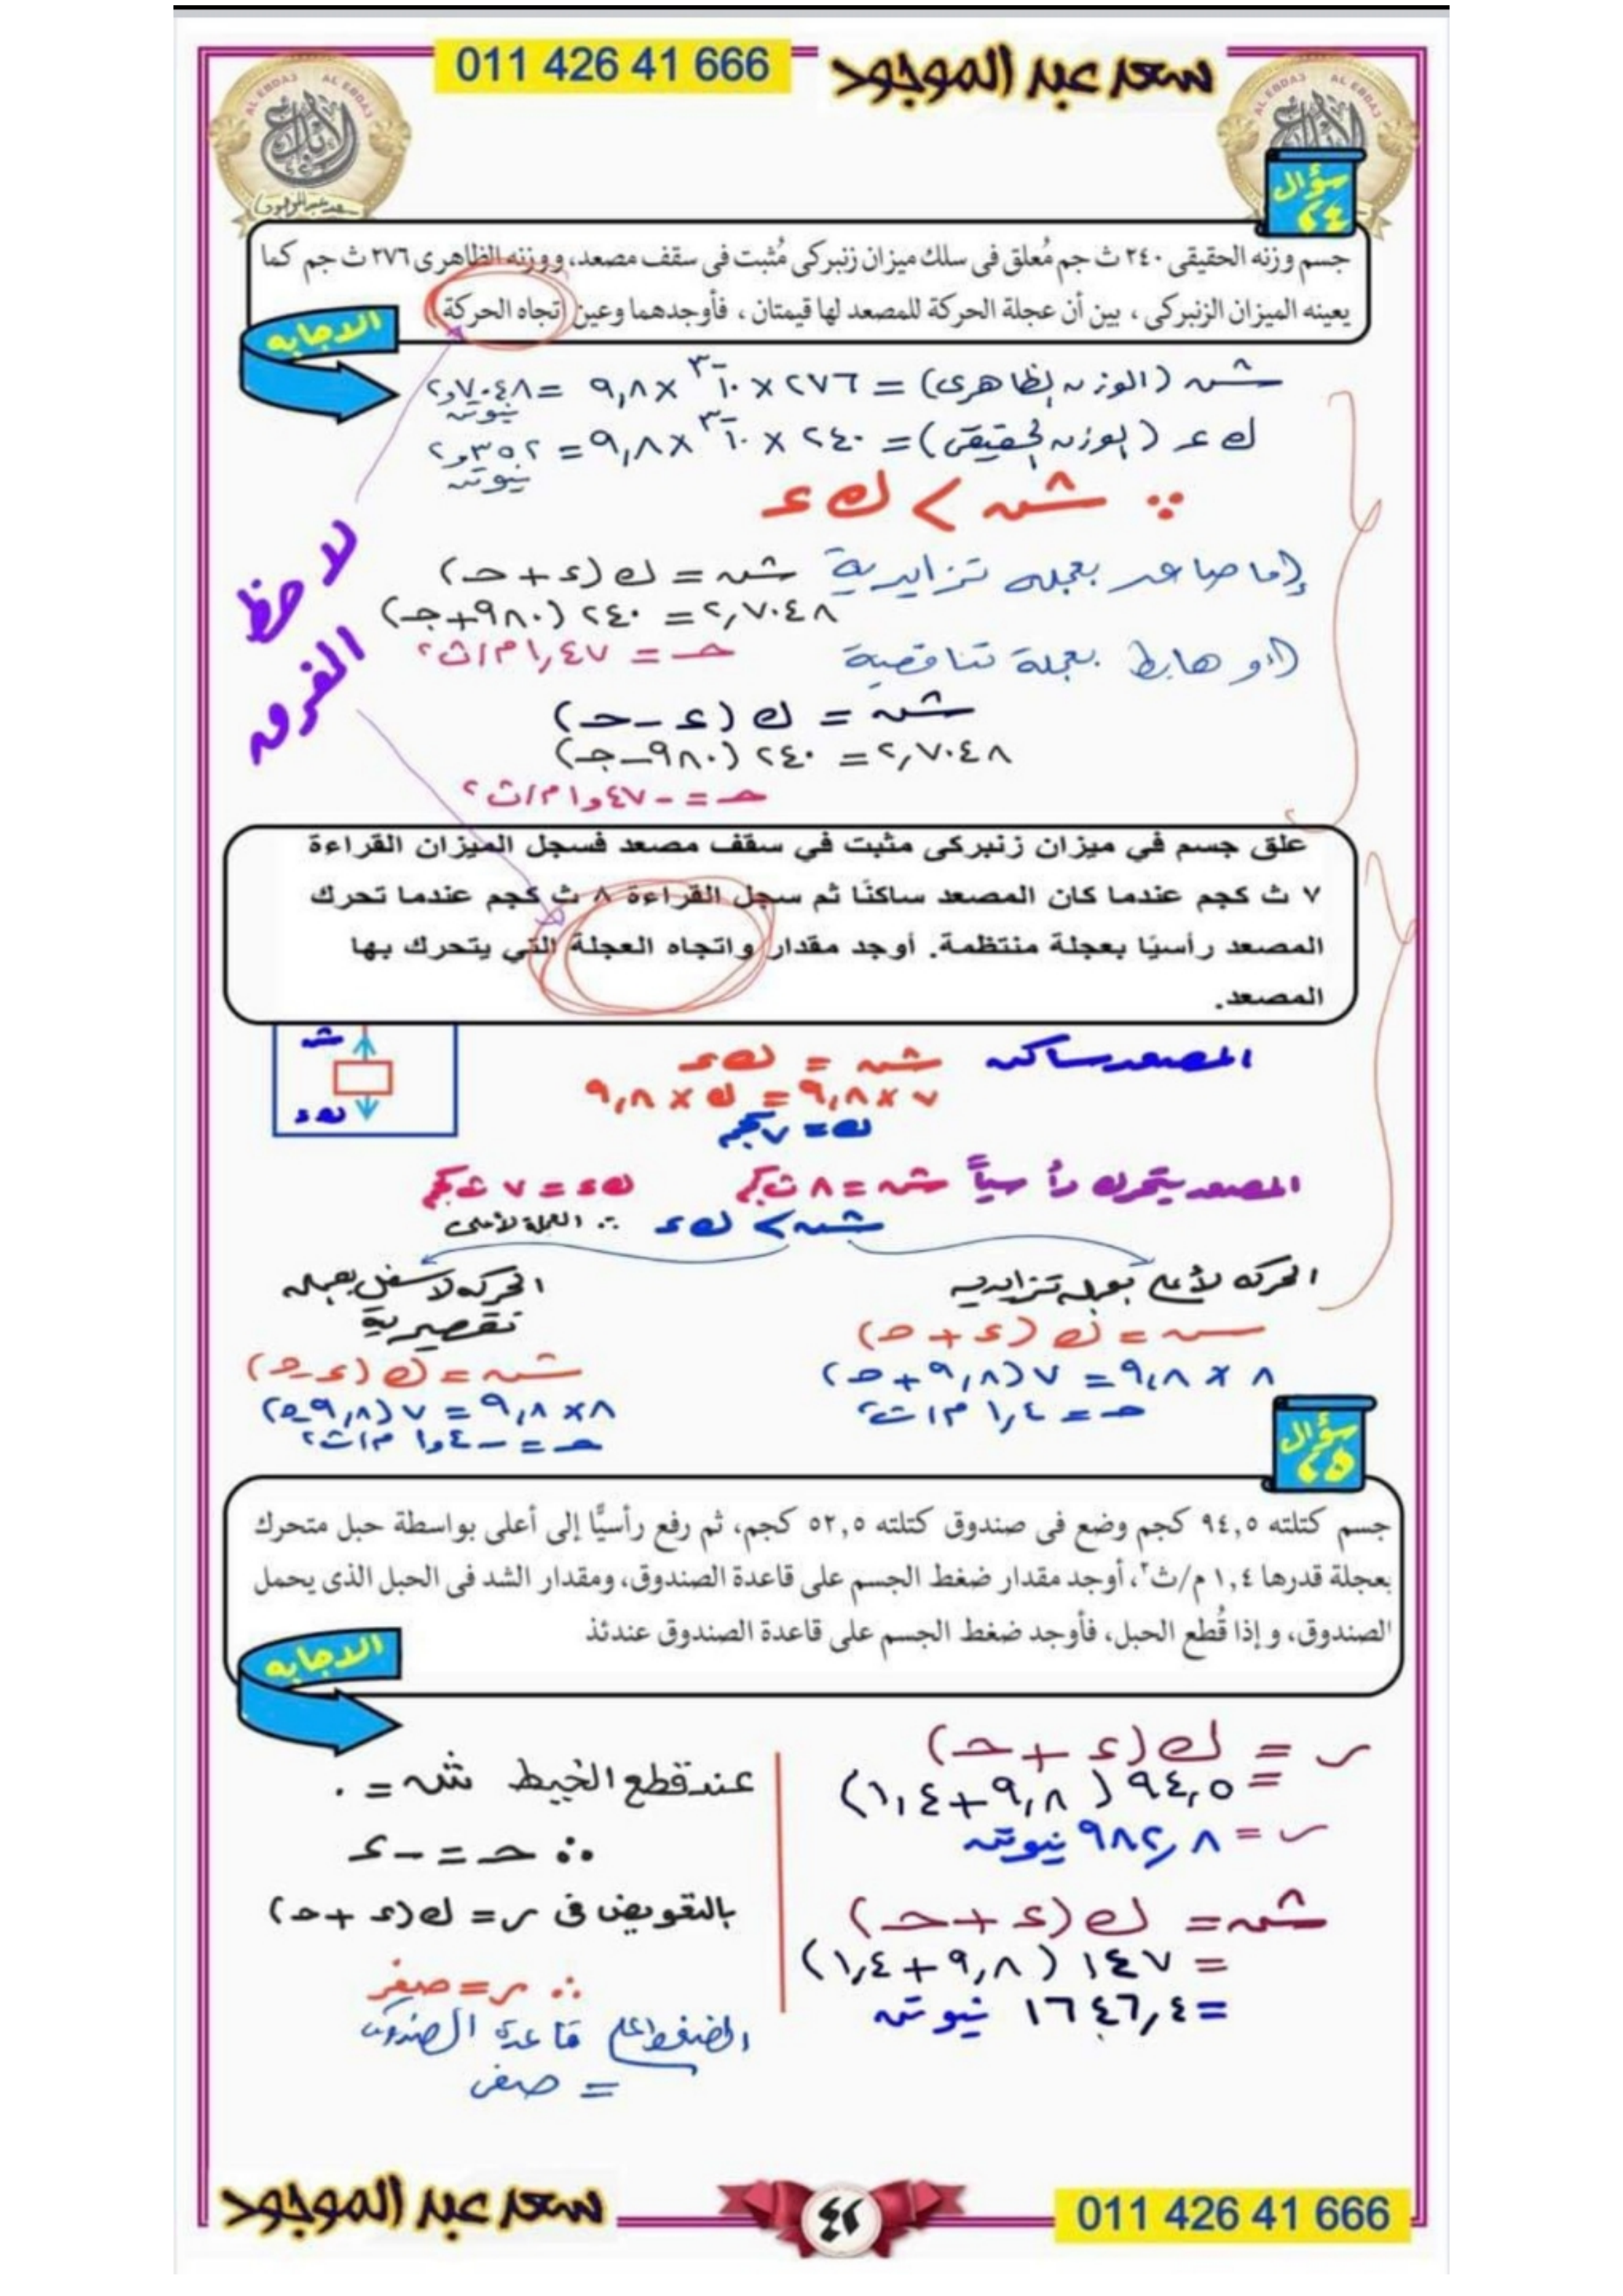 011 426 41 666
سعد عبد الموجود
سؤال
٢٤
جسم وزنه الحقيقى ٢٤٠ ث جم مُعلق فى سلك ميزان زنبركى مُثبت فى سقف مصعد، ووزنه الظاهرى ٢٧٦ ث جم كما
يعينه الميزان الزنبركى ، بين أن عجلة الحركة للمصعد لها قيمتان ، فأوجدهما وعين اتجاه الحركة
الاجابه
شـ (الوزن الظاهرى) = ٢٧٦ × ١٠⁻³ × ٩,٨ = ٢,٧٠٤٨ نيوتن
ك ء (الوزن الحقيقى) = ٢٤٠ × ١٠⁻³ × ٩,٨ = ٢,٣٥٢ نيوتن
∵ شـ > ك ء
لاحظ الفرق
إما صاعد بعجله تزايدية شـ = ك (ء + حـ)
٢,٧٠٤٨ = ٢٤٠ (٩٨٠ + جـ)
حـ = ١,٤٧ م/ث٢
أو هابط بعجلة تناقصية
شـ = ك (ء – حـ)
٢,٧٠٤٨ = ٢٤٠ (٩٨٠ – جـ)
حـ = –١,٤٧ م/ث٢
علق جسم في ميزان زنبركى مثبت في سقف مصعد فسجل الميزان القراءة
٧ ث كجم عندما كان المصعد ساكنًا ثم سجل القراءة ٨ ث كجم عندما تحرك
المصعد رأسيًا بعجلة منتظمة. أوجد مقدار واتجاه العجلة التي يتحرك بها
المصعد.
شـ
ك ء
المصعد ساكن شـ = ك ء
٧ × ٩,٨ = ك × ٩,٨
ك = ٧ كجم
المصعد يتحرك رأسياً شـ = ٨ ث كجم ك ء = ٧ ث كجم
شـ > ك ء ∴ العجلة لأعلى
الحركه لأعلى بعجله تزايديه
شـ = ك (ء + حـ)
٨ × ٩,٨ = ٧ (٩,٨ + حـ)
حـ = ١,٤ م/ث٢
الحركه لأسفل بعجله
تقصيرية
شـ = ك (ء – حـ)
٨ × ٩,٨ = ٧ (٩,٨ – حـ)
حـ = –١,٤ م/ث٢
سؤال
٢٥
جسم كتلته ٩٤,٥ كجم وضع فى صندوق كتلته ٥٢,٥ كجم، ثم رفع رأسيًّا إلى أعلى بواسطة حبل متحرك
بعجلة قدرها ١,٤ م/ث٢، أوجد مقدار ضغط الجسم على قاعدة الصندوق، ومقدار الشد فى الحبل الذى يحمل
الصندوق، وإذا قُطع الحبل، فأوجد ضغط الجسم على قاعدة الصندوق عندئذ
الاجابه
ر = ك (ء + حـ)
= ٩٤,٥ (٩,٨ + ١,٤)
ر = ٩٨٢,٨ نيوتن
شـ = ك (ء + حـ)
= ١٤٧ (٩,٨ + ١,٤)
= ١٦٤٦,٤ نيوتن
عند قطع الخيط شـ = ٠
∴ حـ = –ء
بالتعويض فى ر = ك (ء + حـ)
∴ ر = صفر
الضغط على قاعدة الصندوق
= صفر
سعد عبد الموجود
٤٢
011 426 41 666